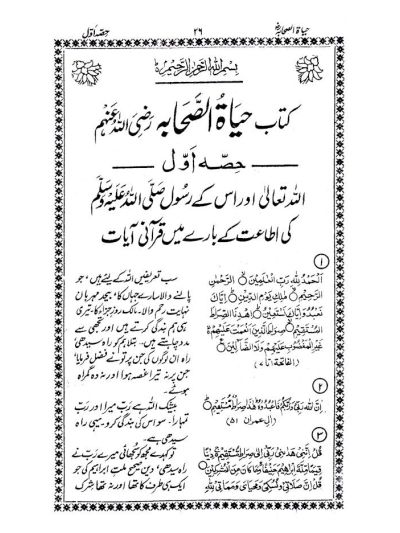 حیاۃ الصحابہؓ ۲۶ حصّہ اوّل
بِسْمِ اللّٰهِ الرَّحْمٰنِ الرَّحِيْمِ
کتاب حیاۃُ الصَّحابہ رَضِیَ اللّٰهُ عَنْهُم
حصہ اوّل
اللہ تعالیٰ اور اس کے رسول صَلَّی اللّٰهُ عَلَیْهِ وَسَلَّم
کی اطاعت کے بارے میں قرآنی آیات
۱
اَلْحَمْدُ لِلّٰهِ رَبِّ الْعٰلَمِيْنَ ۝ الرَّحْمٰنِ
الرَّحِيْمِ ۝ مٰلِكِ يَوْمِ الدِّيْنِ ۝ اِيَّاكَ
نَعْبُدُ وَاِيَّاكَ نَسْتَعِيْنُ ۝ اِهْدِنَا الصِّرَاطَ
الْمُسْتَقِيْمَ ۝ صِرَاطَ الَّذِيْنَ اَنْعَمْتَ عَلَيْهِمْ ۝
غَيْرِ الْمَغْضُوْبِ عَلَيْهِمْ وَلَا الضَّآلِّيْنَ ۝
(الفاتحۃ ۱ تا ۷)
سب تعریفیں اللہ کے لیے ہیں، جو
پالنے والا سارے جہان کا، بیحد مہربان
نہایت رحم والا۔ مالک روزِ جزا کا۔ تیری
ہی ہم بندگی کرتے ہیں اور تجھی سے
مدد چاہتے ہیں۔ بتلا ہم کو راہ سیدھی
راہ ان لوگوں کی جن پر تو نے فضل فرمایا
جن پر نہ تیرا غصہ ہوا اور نہ وہ گمراہ
ہوئے۔
۲
اِنَّ اللّٰهَ رَبِّيْ وَرَبُّكُمْ فَاعْبُدُوْهُ هٰذَا صِرَاطٌ مُّسْتَقِيْمٌ ۝
(آلِ عمران ۵۱)
بیشک اللہ ہے رب میرا اور رب
تمہارا۔ سو اس کی بندگی کرو۔ یہی راہ
سیدھی ہے۔
۳
قُلْ اِنَّنِيْ هَدٰىنِيْ رَبِّيْ اِلٰى صِرَاطٍ مُّسْتَقِيْمٍ ۝ دِيْنًا
قِيَمًا مِّلَّةَ اِبْرٰهِيْمَ حَنِيْفًا وَّمَا كَانَ مِنَ الْمُشْرِكِيْنَ ۝
قُلْ اِنَّ صَلَاتِيْ وَنُسُكِيْ وَمَحْيَايَ وَمَمَاتِيْ لِلّٰهِ
تو کہہ دے مجھ کو سجھائی میرے رب نے
راہ سیدھی، دین صحیح ملت ابراہیم کی جو
ایک ہی طرف کا تھا اور نہ تھا شرک